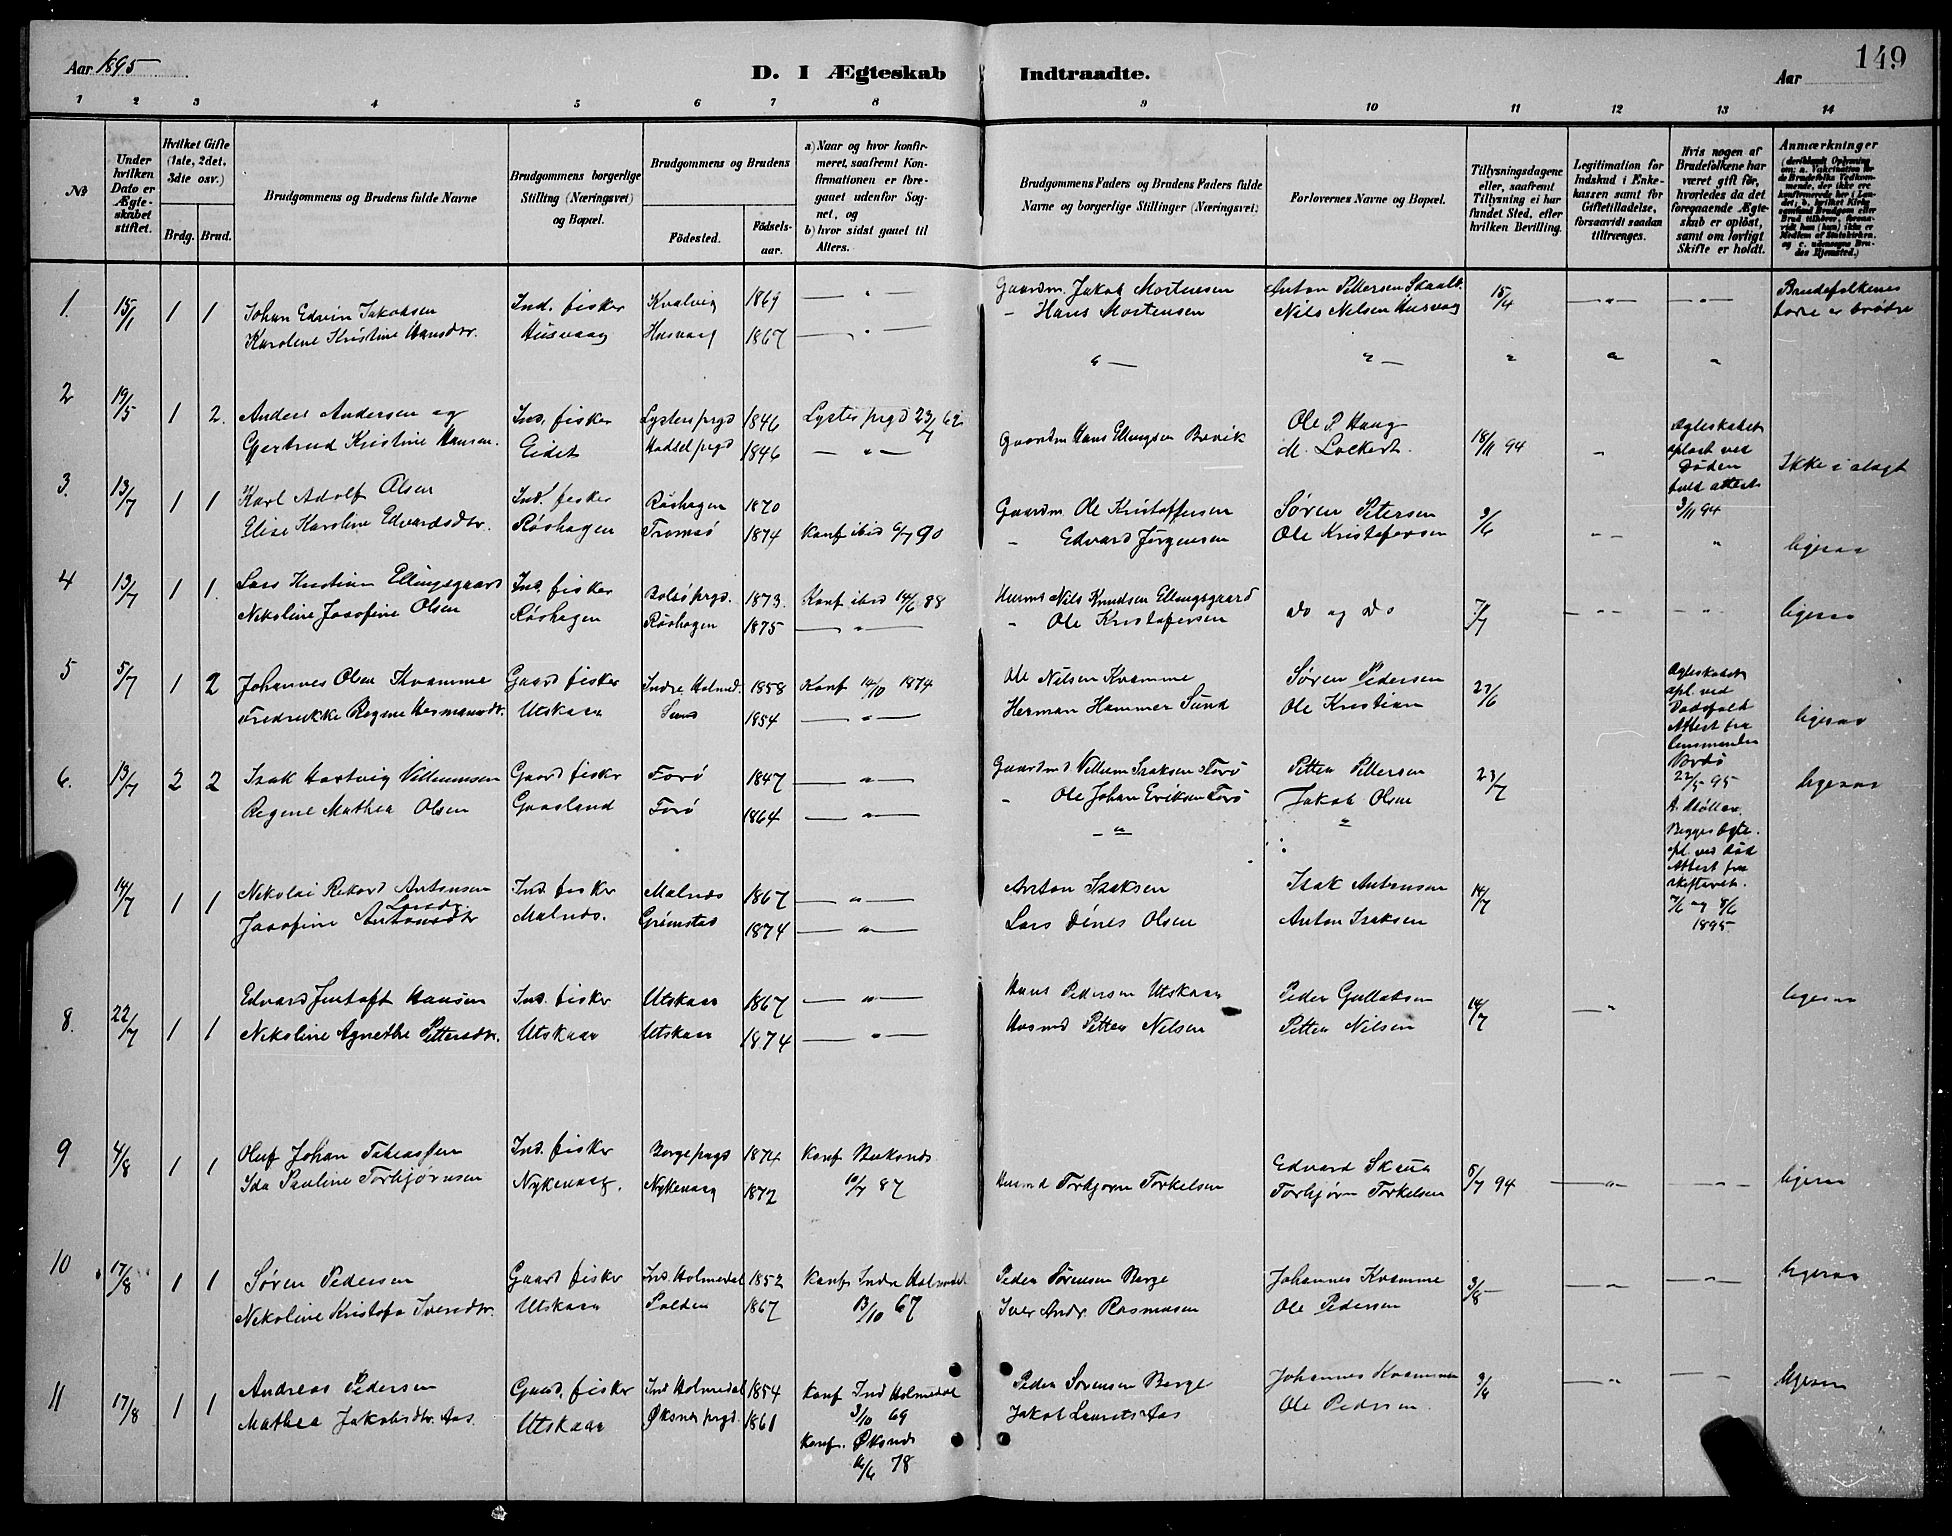 Aar 1895
D. I Ægteskab Indtraadte.
Aar
149
1 2 3 4 5 6 7 8 9 10 11 12 13 14
No
Under hvilken Dato er Ægteskabet stiftet.
Hvilket Gifte (1ste, 2det, 3die osv.)
Brdg. Brud.
Brudgommens og Brudens fulde Navne
Brudgommens borgerlige Stilling (Næringsvei) og Bopæl.
Brudgommens og Brudens
Födested.
Födselsaar.
a) Naar og hvor konfirmeret, saafremt Konfirmationen er foregaaet udenfor Sognet, og
b) hvor sidst gaaet til Alters.
Brudgommens Faders og Brudens Faders fulde Navne og borgerlige Stillinger (Næringsvei)
Forlovernes Navne og Bopæl.
Tillysningsdagene eller, saafremt Tillysning ei har fundet Sted, efter hvilken Bevilling.
Legitimation for Indskud i Ænkekassen samt for Giftetilladelse, forsaavidt saadan tiltrænges.
Hvis nogen af Brudefolkene har været gift før, hvorledes da det foregaaende Ægteskab er opløst, samt om lovligt Skifte er holdt.
Anmærkninger
1. 15/1 1 1 Johan Edvin Jakobsen Ind. fisker Kvalvig 1869 — " — Gaardm. Jakob Mortensen Anton Pettersen Skaalb. 15/4 — " — — " — Brudefolkenes
Karoline Kristine Hansdtr. Husvaag Husvaag 1867 — " — - Hans Mortensen Nils Nelsen Husvaag fædre er brødre
2 19/5 1 2. Anders Andersen og Ind. fisker Lyster prgd 1846 Lyster prgd 23/7 62 Ole P. Haug Ægteskabet
Gjertrud Kristine Hansen Eidet Hadsel prgd 1846 — " — Gaardm Hans Ellingsen Bervik M. Lockert 18/11 94 opløst ved Døden
Ikke i slægt
hvld attest 3/11 94
3. 13/7 1 1 Karl Adolf Olsen Ind. fisker Røshagen 1870 Gaardm Ole Kristoffersen Søren Petersen 9/6
Elise Karoline Edvardsdtr. Røshagen Tromsø 1874 Konf ibid 6/7 90 - Edvard Jørgensen Ole Kristofersen ligesaa
4 13/7 1 1. Lars Kristian Ellingsgaard Ind. fisker Bolsø prgd. 1873. Konf ibid 14/6 88 Husmd Nils Knudsen Ellingsgaard do og do 7/7
Nikoline Josefine Olsen Røshagen Røshagen 1875 — " — - Ole Kristofersen ligesaa
5 5/7 1 2 Johannes Olsen Kvamme Gaard fisker Indre Holmed. 1858 Konf 14/10 1874 Ole Nilsen Kvamme Søren Pedersen 23/6 Ægteskabet
Fredrikke Regine Hermansdtr. Utskaar Sund 1854 — " — Herman Hammer Sund Ole Kristian opl. ved Dødsfald
Attest fra lensmanden Bodø 22/5 95
ligesaa
6. 13/7 2 2 Isak Hartvig Villumsen Gaard fisker Forø 1847 — " — Gaardmd Villum Isaksen Forø Petter Pettersen 23/7
Regine Mathea Olsen Gaasland Forø 1864 — " — - Ole Johan Eriksen Forø Jakob Olsen
ligesaa
Begges Ægte. opl. ved død
Attest fra skifteretn. 7/6 og 8/6 1895.
14/7 1 1 Nikolai Rikard Antonsen Ind. fisker Malnes 1867 — " — Anton Isaksen Isak Antonsen 14/7
Josefine Antonsdtr Larsdtr Malnes. Grimstad 1874 — " — Lars Dines Olsen Anton Isaksen
8. 22/7 1 1 Edvard Jentoft Hansen Ind. fisker Utskaar 1867 — " — Hans Pedersen Utskaar Peder Gullaksen 14/7 ligesaa
Nikoline Agnethe Pettersdtr. Utskaar Utskaar 1874 — " — Husmd Petter Nilsen Petter Nilsen
9 4/8 1 1 Oluf Johan Tobiassen Ind. fisker Borge prgd 1874 Konf Buksnes Edvard Skaug
Ida Pauline Torbjørnsen Nykvaag. Nykvaag 1872 10/7 87 Husmd Torbjørn Torkelsen Torbjørn Torkelsen 5/7 94 — " — — " — ligesaa
10 17/8 1 1 Søren Pedersen Gaard fisker Ind. Holmedal 1852 Konf. Indre Holmedal Peder Sørensen Berge Johannes Kvamme 3/8 — " — — " — ligesaa
Nikoline Kristofa Iversdtr. Utskaar Solden 1867 13/10 67 Iver Andr. Rasmusen Ole Pedersen
11 17/8 1 1 Andreas Pedersen Gaard. fisker Ind Holmedal 1854 Konf Ind Holmedal Peder Sørensen Berge Johannes Kvamme 3/8 — " — — " — ligesaa
Mathea Jakobsdtr. Aas. Utskaar Øksnes prgd. 1861 3/10 69 Jakob Lauritz Aas Ole Pedersen
Konf. Øksnes 16/6 78